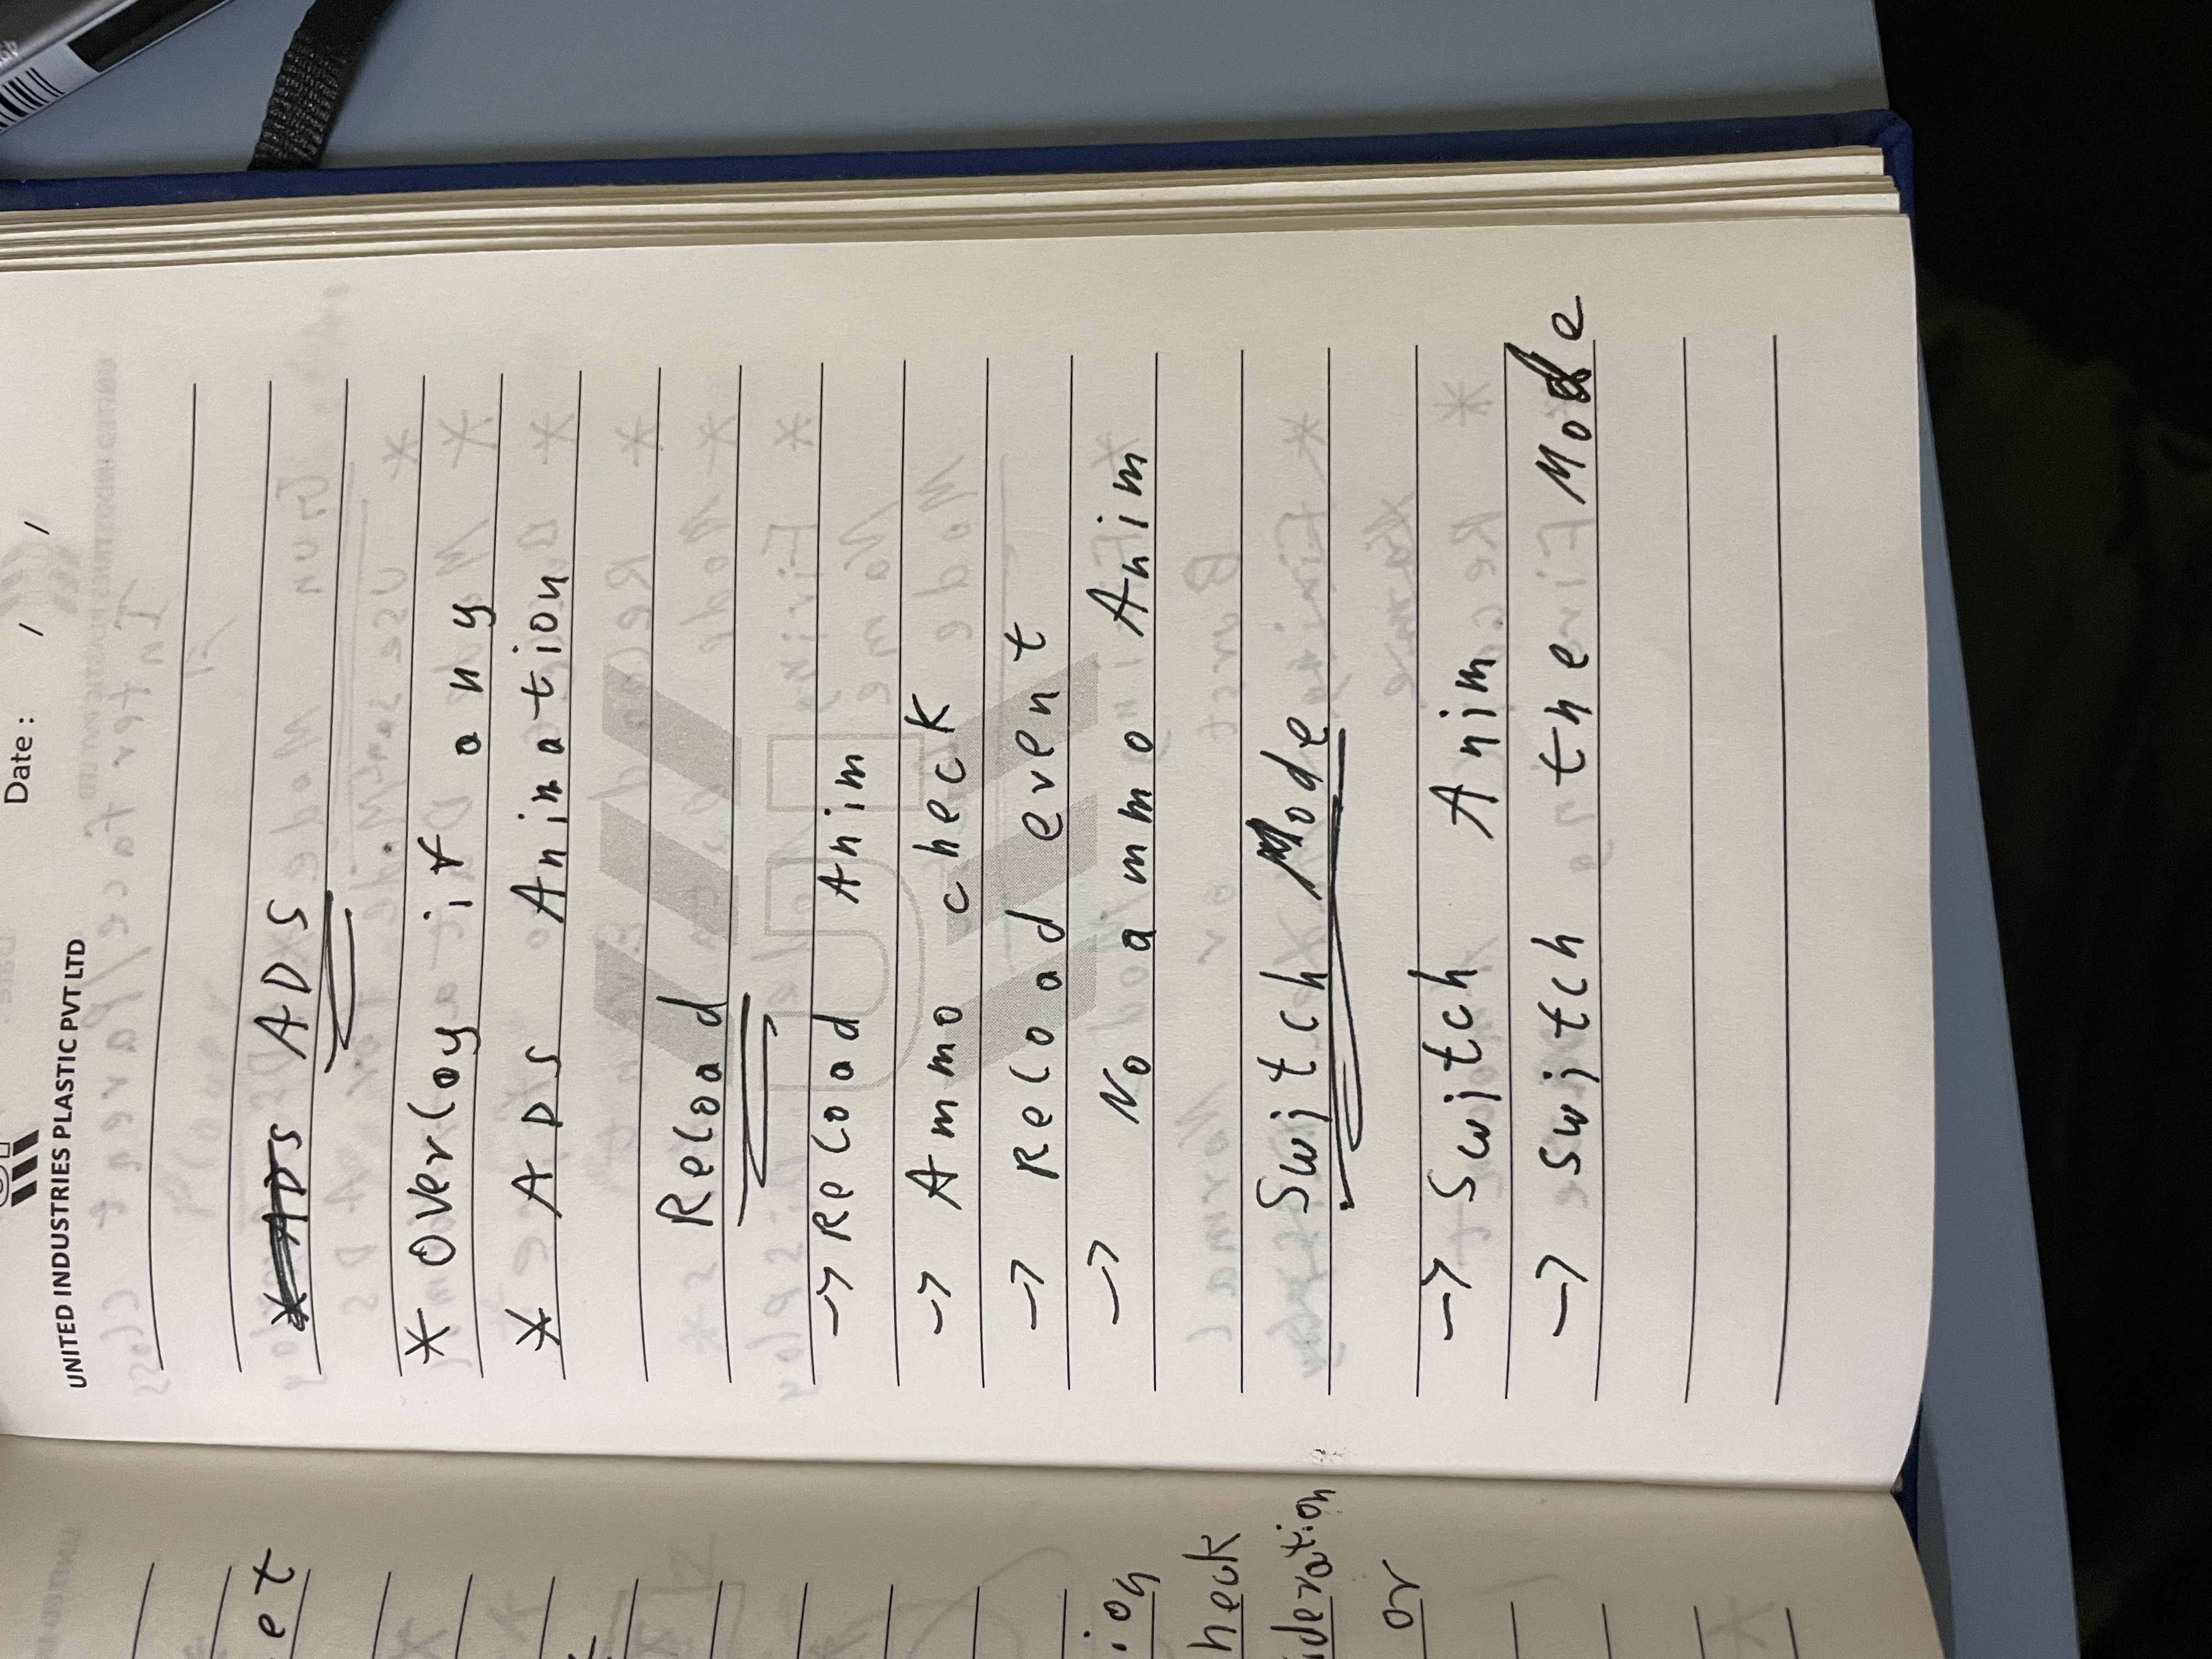 Date : / /
UNITED INDUSTRIES PLASTIC PVT LTD
ADS ADS
* Overlay if any
* ADS Animation
Reload
-> Reload Anim
-> Ammo check
-> Reload event
-> No ammo Anim
Switch Mode
-> Switch Anim
-> Switch the Mode
et
ion
heck
ideration
or